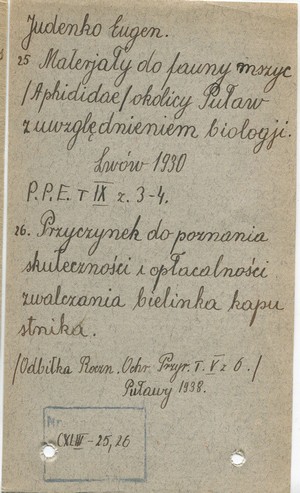 Judenko Eugen.
25 Materjały do fauny mszyc
/Aphididae/ okolicy Puław
z uwzględnieniem biologji.
Lwów 1930
P.P.E. T IX z. 3-4.
26. Przyczynek do poznania
skuteczności i opłacalności
zwalczania bielinka kapu
stnika.
/Odbitka Roczn. Ochr. Przyr. T. V z 6./
Puławy 1938.
Nr
CXLIII-25,26